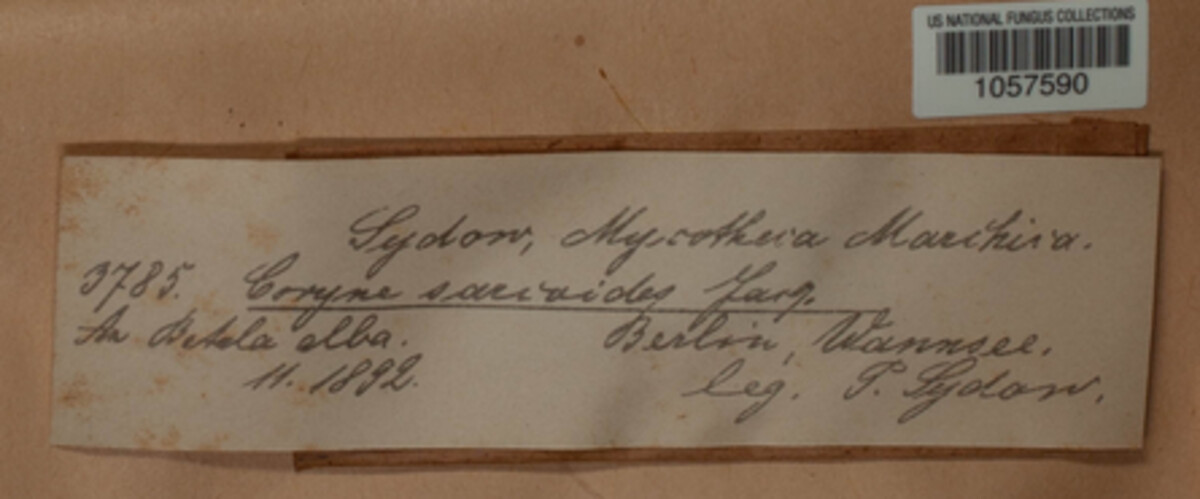 US NATIONAL FUNGUS COLLECTIONS
1057590
Sydow, Mycotheca Marchica.
3785. Coryne sarcoides Jacq.
An Betula alba. Berlin, Wannsee.
11. 1892. leg. P. Sydow.